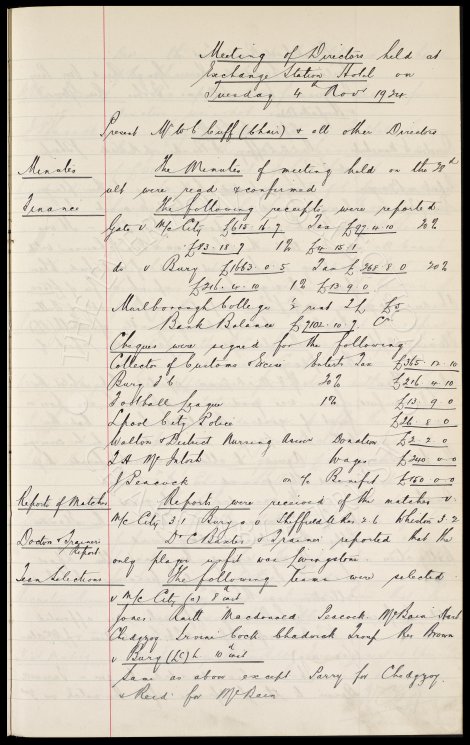 Meeting of Directors held at
Exchange Station Hotel on
Tuesday 4th Nov 1924
Present Mr W C Cuff (Chair) & all other Directors
Minutes The Minutes of meeting held on the 28th
ult were read & confirmed
Finance The following receipts were reported.
Gate v M/c City £615.16.7 Tax £97.4.10 20%
£83.18.9 1% £4.15.1
do v Bury £1663.0.5 Tax £268.8.0 20%
£216.4.10 1% £13.9.0
Marlborough College ½ rent £5
Bank Balance £7102.10.7 Cr
Cheques were signed for the following
Collector of Customs & Excise Enterts Tax £365.12.10
Bury F C 20% £216.4.10
Football League 1% £13.9.0
Lpool City Police £26.8.0
Walton & District Nursing Donation £2.2.0
T H McIntosh Wages £240.0.0
J Peacock on a/c Benefit £150.0.0
Reports of Matches Reports were received of the matches v.
M/c City 3.1 Bury 0.0 Sheffield 2.6 3.2
Doctor & Trainers Report. Dr C Baxter & Trainer reported that the
only player unfit was Livingstone.
Team Selections The following Teams were selected
v M/c City (a) 8th inst
Jones Raitt Macdonald Peacock McBain Hart
Chedgzoy Irvine Cock Chadwick Troup Res Brown
v Bury (LC) h 10th inst
Same as above except Parry for Chedgzoy.
& Reid for McBain